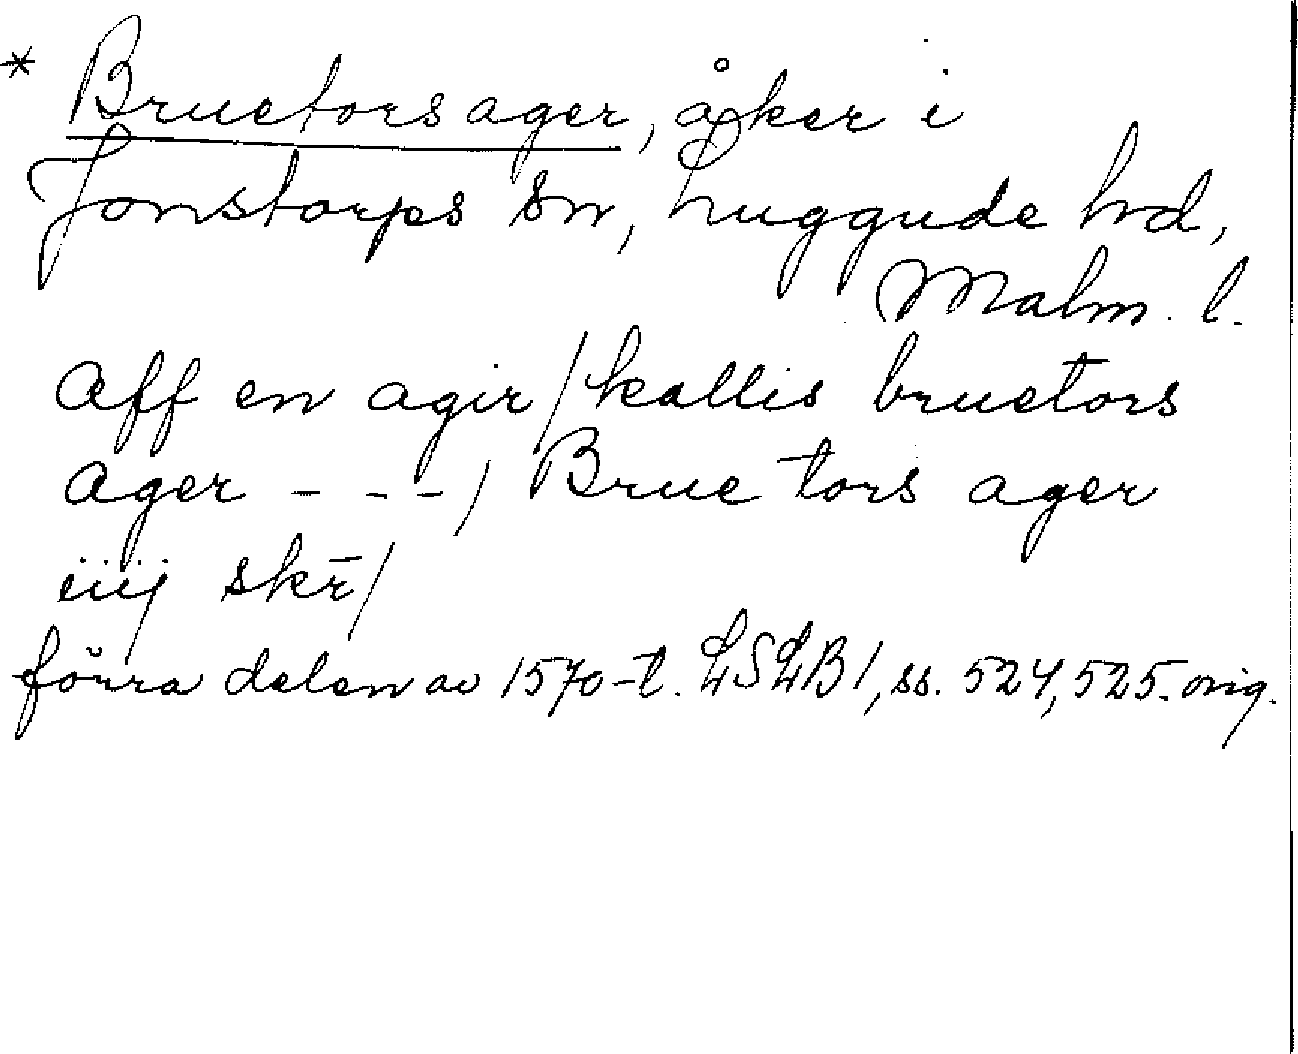 * Bruetorsager, åker i
Jonstorps sn, Luggude hd,
Malm. l.
Aff en agir / kallis bruetors
Ager - - - / Brue tors ager
iiij skr̄ /
förra delen av 1570-t. LSLB1, ss. 524, 525. orig.